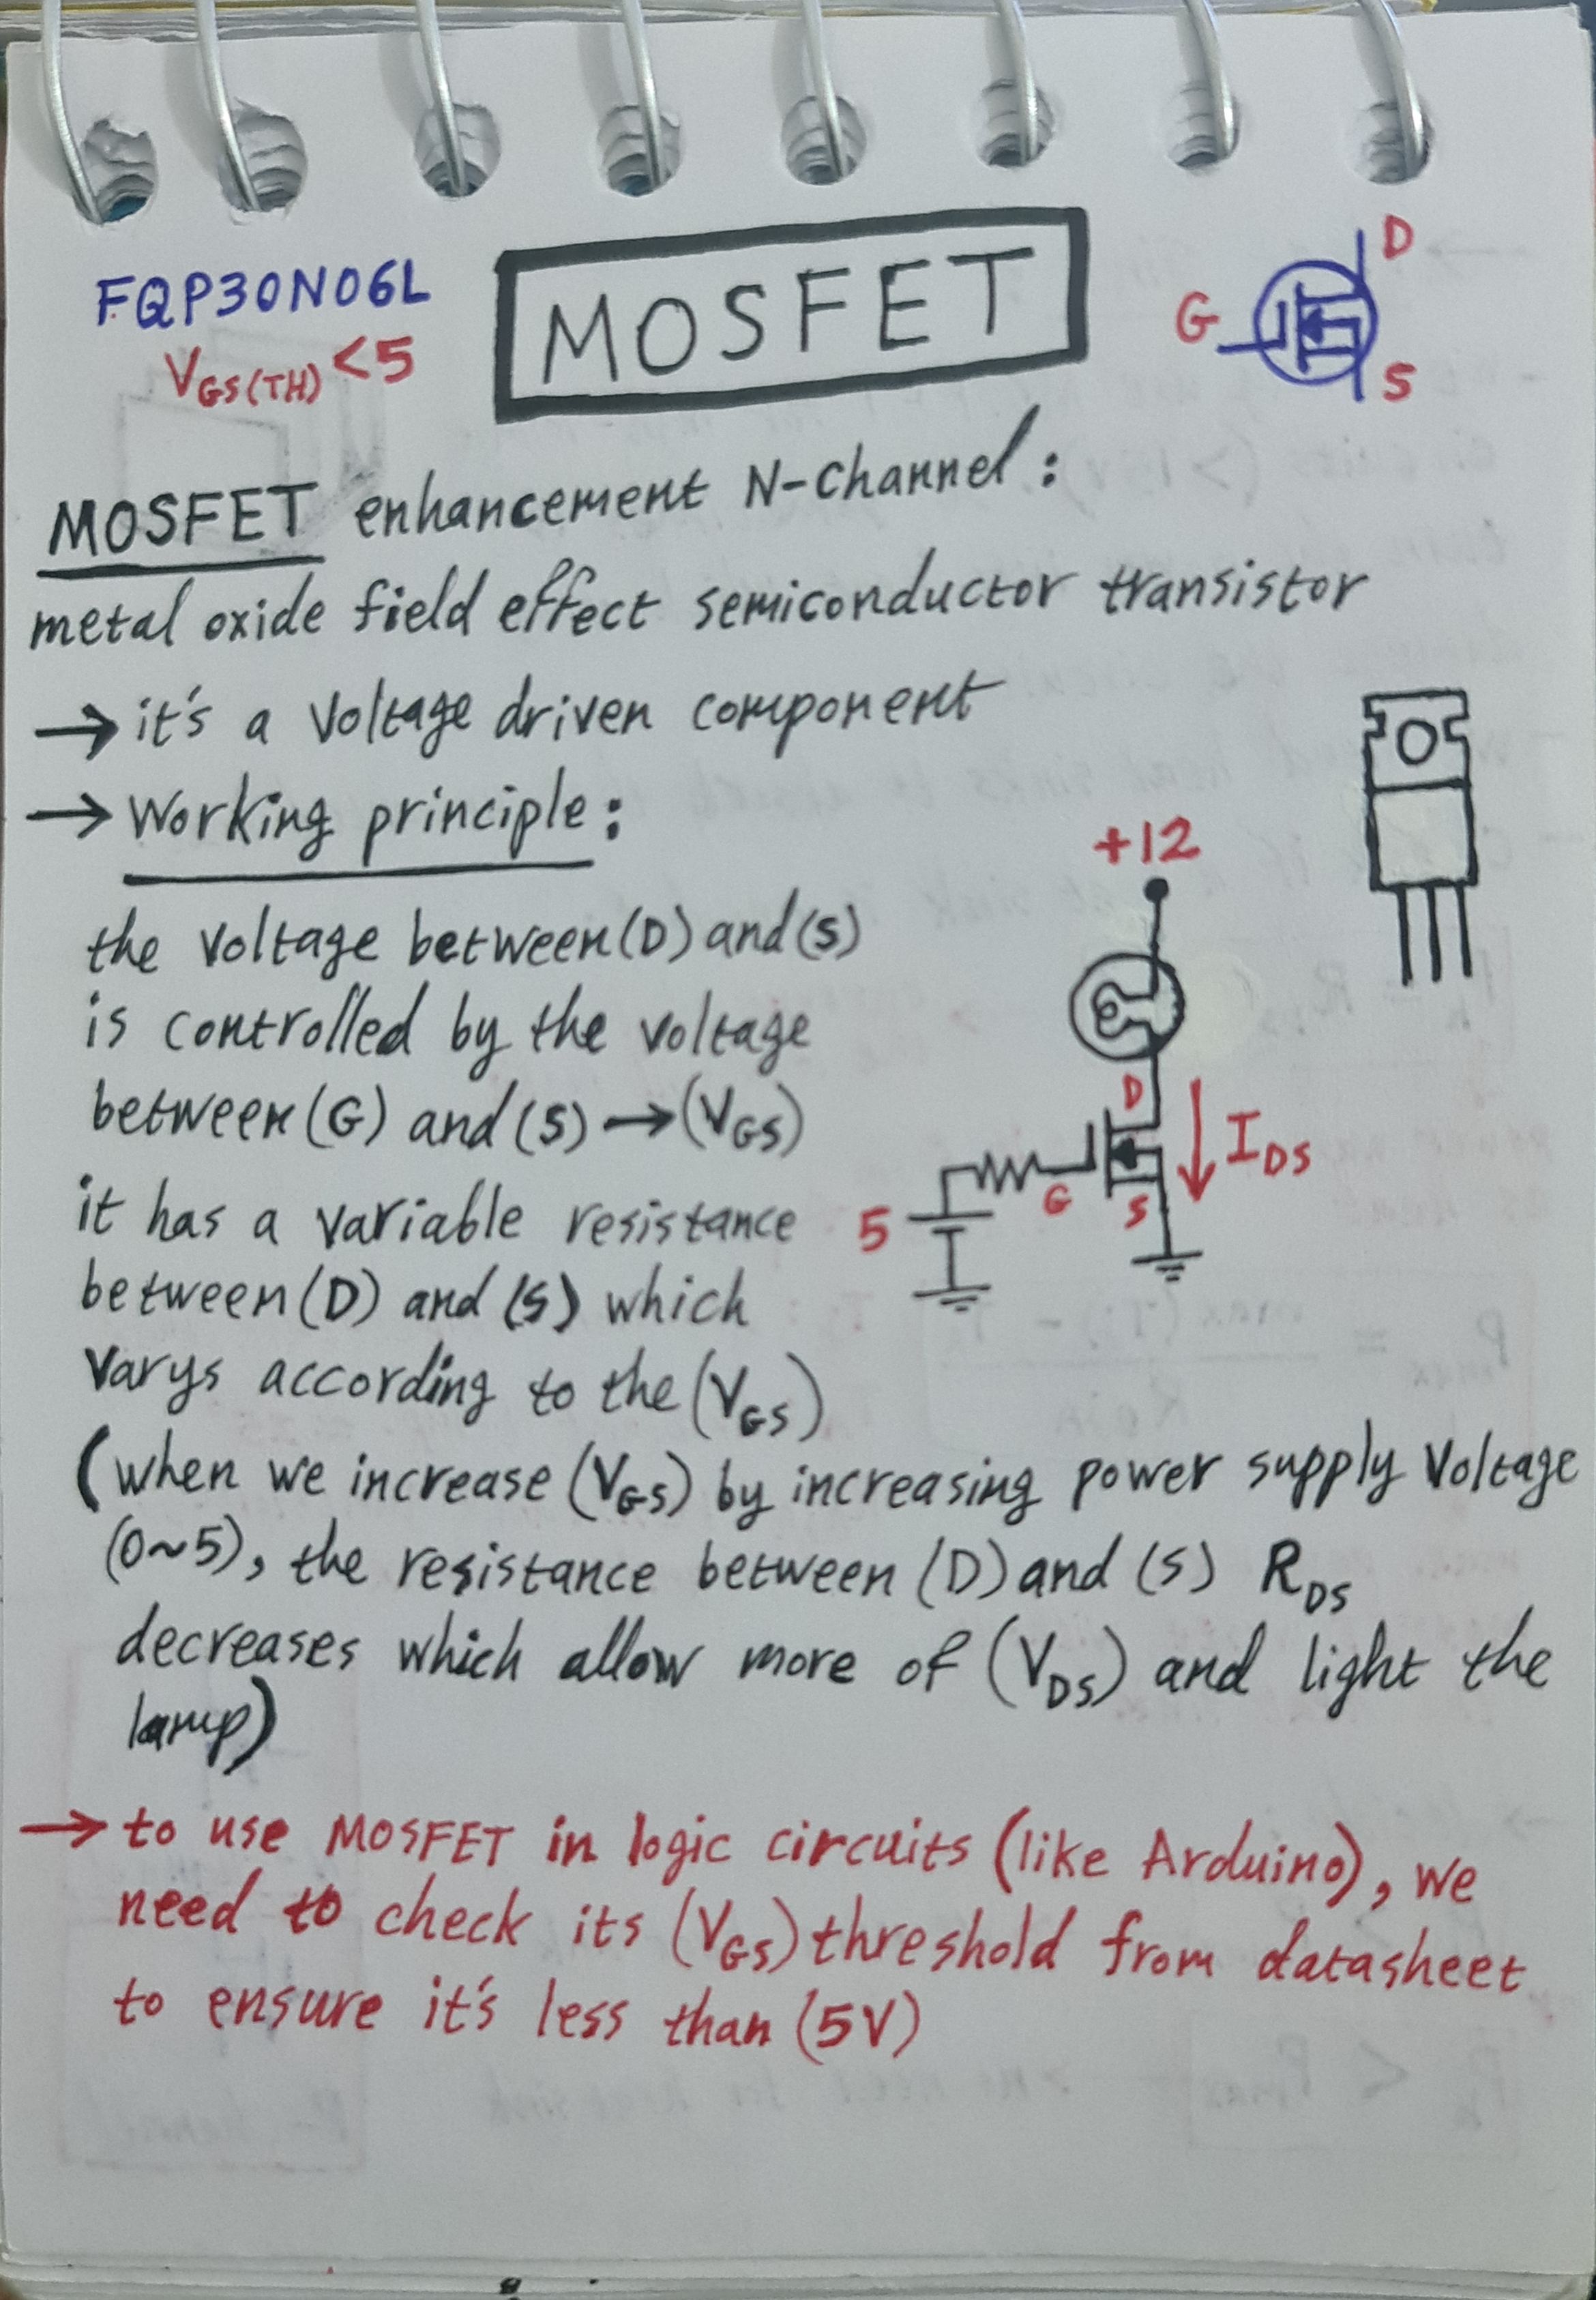 FQP30N06L
VGS(TH) <5
MOSFET
D
G
S
MOSFET enhancement N-channel:
metal oxide field effect semiconductor transistor
→ it's a voltage driven component
→ Working principle:
the voltage between (D) and (S)
is controlled by the voltage
between (G) and (S) → (VGS)
it has a variable resistance
between (D) and (S) which
varys according to the (VGS)
+12
D
IDS
G
S
5
(when we increase (VGS) by increasing power supply voltage
(0~5), the resistance between (D) and (S) RDS
decreases which allow more of (VDS) and light the
lamp)
→ to use MOSFET in logic circuits (like Arduino), we
need to check its (VGS) threshold from datasheet
to ensure it's less than (5V)